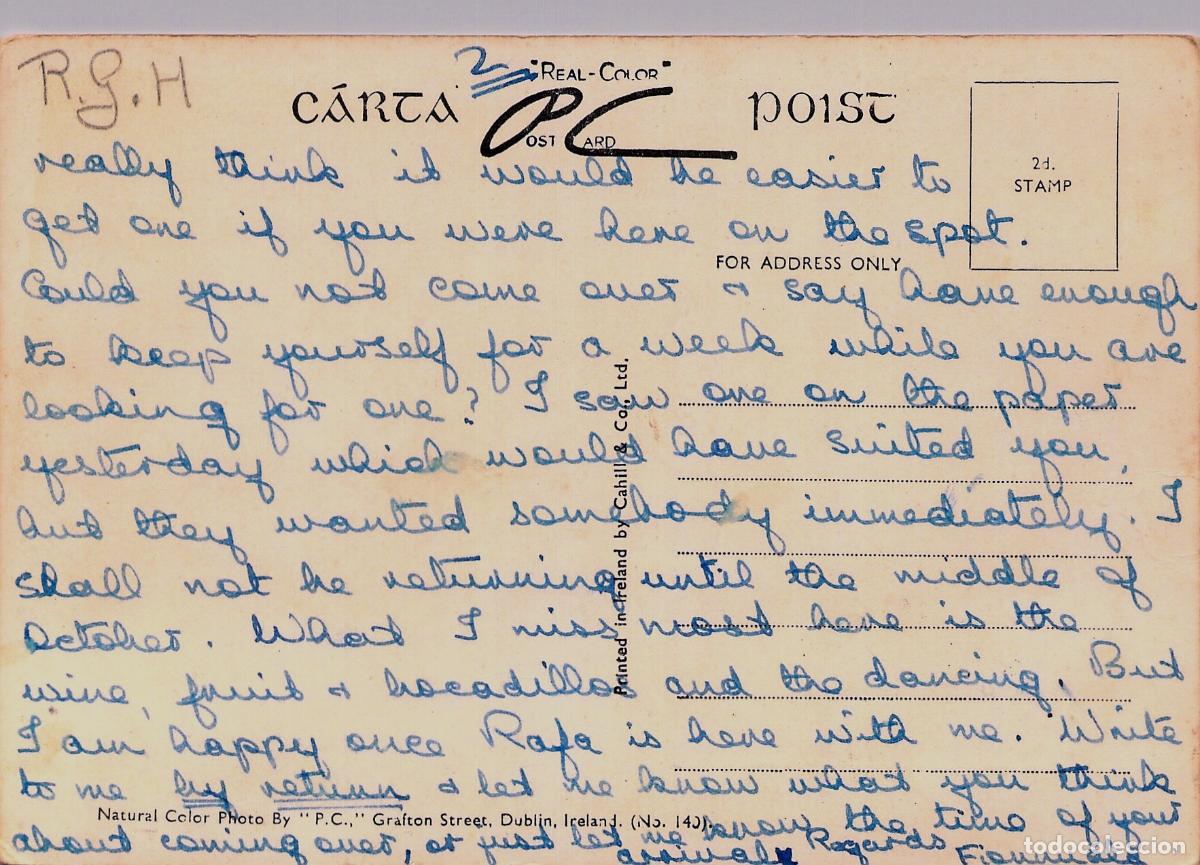 R.G.H
2
"REAL-COLOR"
CÁRTA POIST
POST CARD
2d.
STAMP
really think it would be easier to
get one if you were here on the spot.
FOR ADDRESS ONLY
Could you not come over & say have enough
to keep yourself for a week while you are
looking for one? I saw one on the paper
yesterday which would have suited you,
but they wanted somebody immediately. I
shall not be returning until the middle of
October. What I miss most here is the
wine, fruit & bocadillos and the dancing. But
I am happy once Rafa is here with me. Write
to me by return & let me know what you think
about coming over, or just let me know the time of your
arrival. Regards
Printed in Ireland by Cahill & Co., Ltd.
Natural Color Photo By "P.C.," Grafton Street, Dublin, Ireland. (No. 140).
todocoleccion